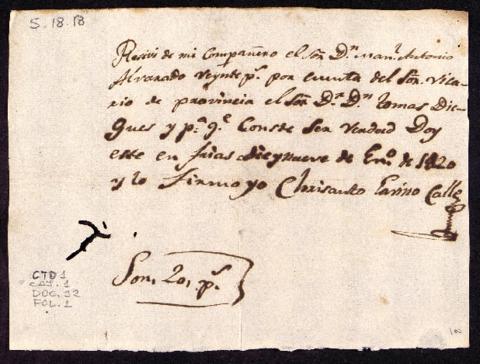 5.18.13
Resivi de mi Compañero el Sor. Dn. Manl. Antonio
Alvarado veynte ps. por cuenta del Sor. Vica-
rio de provincia el Sor. Dr. Dn. tomas Die-
gues y pa. qe. Conste Ser verdad Doy
este en dies y nueve de Eno. de 1820
y lo Firmo yo Chrisanto Farino Calle
Son, 20, ps.
CTD1
CAJ. 1
DOC. 32
FOL. 1